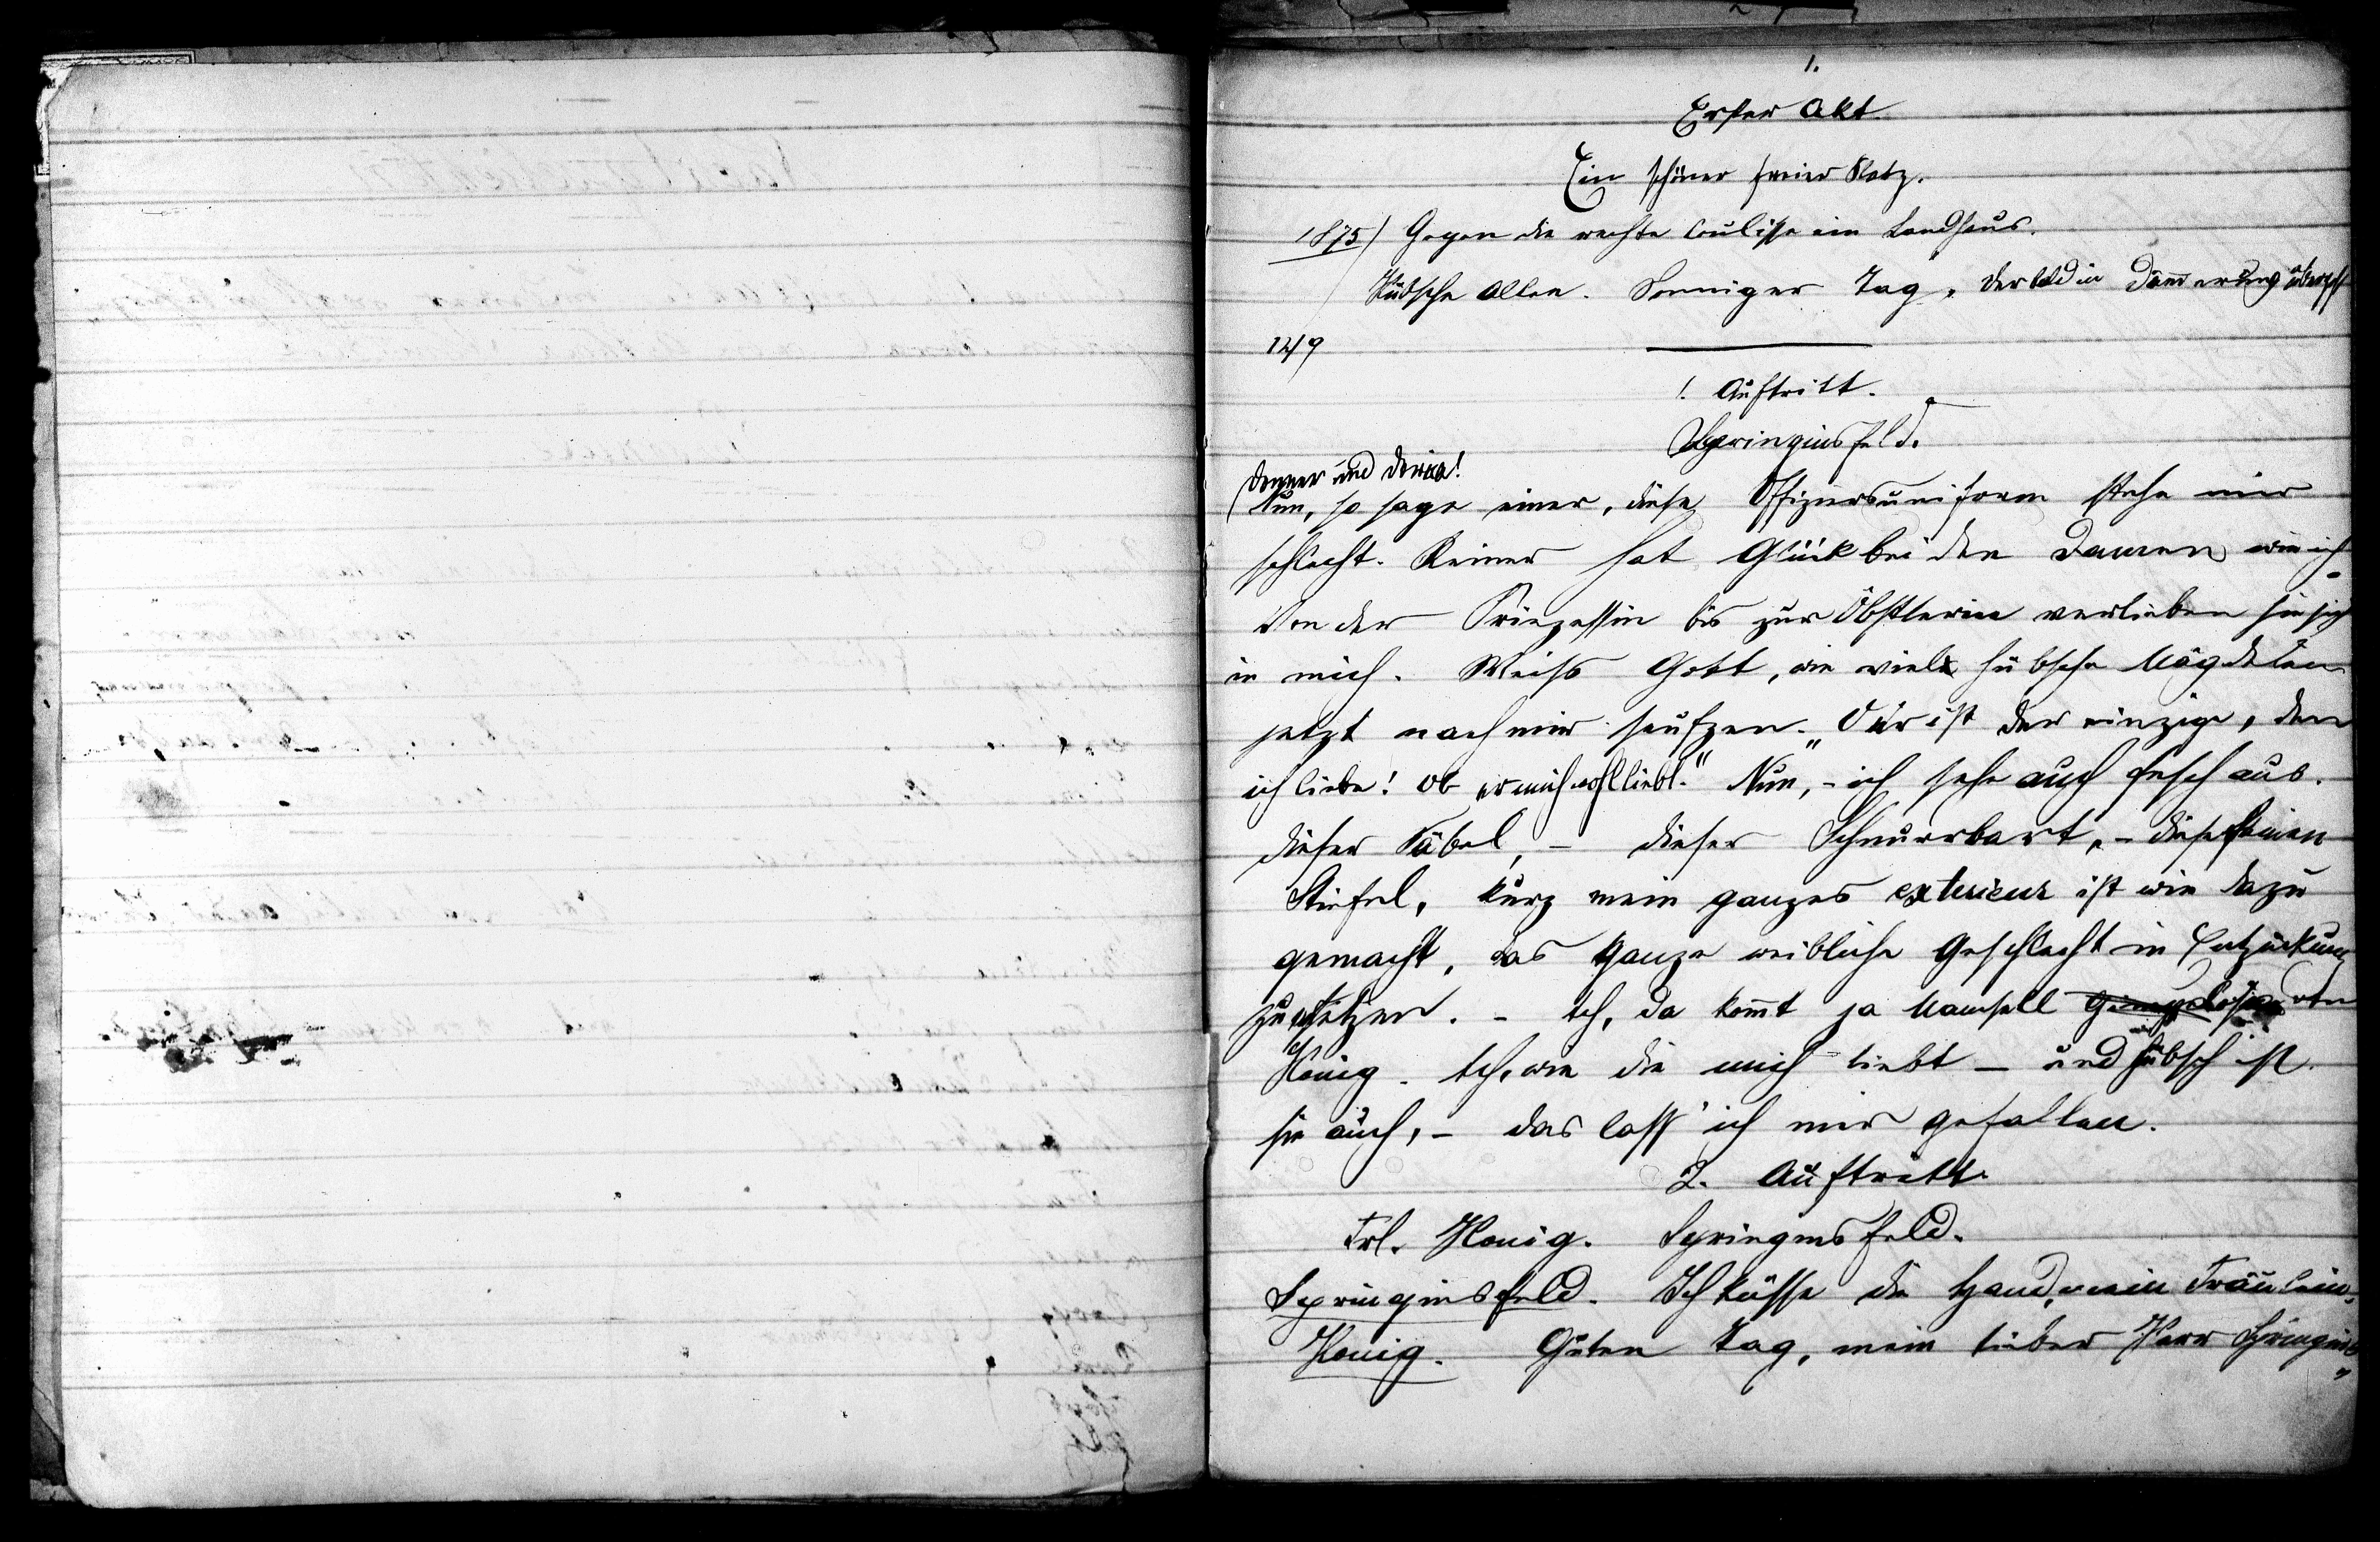 1.
Erster Akt.
Ein schöner freier Platz.
1875) Gegen die rechte Coulisse ein Landhaus.
Hübsche Allee. Sonniger Tag, der bald in Dämerung übergeht
12/9
1. Auftritt.
Springinsfeld.
Donner und Doria!
Nun, so sage einer, diese Offiziersuniform stehe mir
schlecht. Keiner hat Glück bei den Damen wie ich.
Von der Prinzessin bis zur Öbstlerin verlieben sie sich
in mich. Weiß Gott, wie viele hübsche Mägdelein
jetzt nach mir seufzen. „Der ist der einzige, den
ich liebe! Ob er mich wohl liebt." Nun, - ich sehe auch fesch aus.
Dieser Säbel, - dieser Schnurrbart, - diese feinen
Stiefel, kurz mein ganzes exterieur ist wie dazu
gemacht, das ganze weibliche Geschlecht in Entzückung
zu setzen. - Ah, da komt ja Mamsell von
Honig. Ach, wie die mich liebt - und hübsch ist
sie auch, - das lass' ich mir gefallen.
2. Auftritt.
Frl. Honig. Springinsfeld.
Springinsfeld. Ich küsse die Hand, mein Fräulein.
Honig. Guten Tag, mein lieber Herr Springins